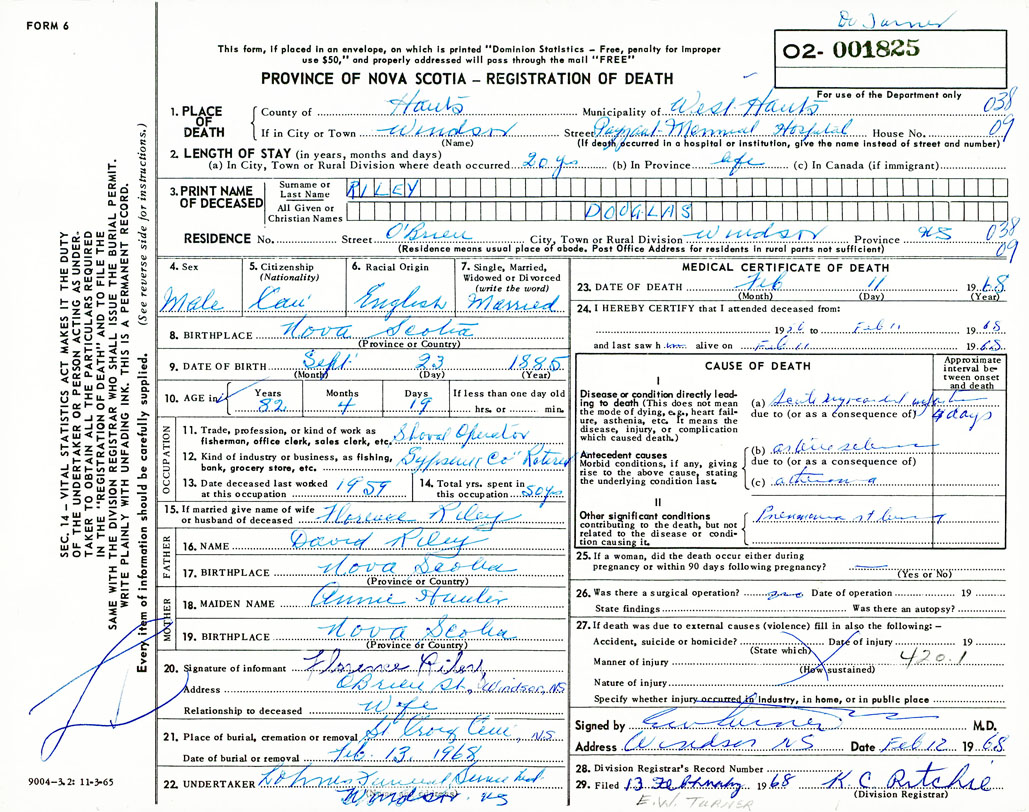 Dr Turner
FORM 6
O2- 001825
This form, if placed in an envelope, on which is printed "Dominion Statistics – Free, penalty for improper
use $50," and properly addressed will pass through the mail "FREE"
PROVINCE OF NOVA SCOTIA – REGISTRATION OF DEATH
For use of the Department only
1. PLACE OF DEATH
County of Hants Municipality of West Hants 038
If in City or Town Windsor Street Payzant Memorial Hospital House No. 09
(Name) (If death occurred in a hospital or institution, give the name instead of street and number)
2. LENGTH OF STAY (in years, months and days)
(a) In City, Town or Rural Division where death occurred 20 yrs (b) In Province life (c) In Canada (if immigrant)
3. PRINT NAME OF DECEASED
Surname or Last Name RILEY
All Given or Christian Names DOUGLAS
RESIDENCE No. Street O'Brien City, Town or Rural Division Windsor Province NS 038
(Residence means usual place of abode. Post Office Address for residents in rural parts not sufficient) 09
4. Sex Male
5. Citizenship (Nationality) Can
6. Racial Origin English
7. Single, Married, Widowed or Divorced (write the word) Married
8. BIRTHPLACE Nova Scotia
(Province or Country)
9. DATE OF BIRTH Sept 23 1885
(Month) (Day) (Year)
10. AGE in Years 82 Months 4 Days 19 If less than one day old hrs. or min.
OCCUPATION
11. Trade, profession, or kind of work as
fisherman, office clerk, sales clerk, etc. Shovel Operator
12. Kind of industry or business, as fishing,
bank, grocery store, etc. Gypsum Co Retired
13. Date deceased last worked
at this occupation 1959
14. Total yrs. spent in
this occupation 50 yrs
15. If married give name of wife
or husband of deceased Florence Riley
FATHER
16. NAME David Riley
17. BIRTHPLACE Nova Scotia
(Province or Country)
MOTHER
18. MAIDEN NAME Annie Hunter
19. BIRTHPLACE Nova Scotia
(Province or Country)
20. Signature of informant Florence Riley
Address O'Brien St., Windsor, NS
Relationship to deceased Wife
21. Place of burial, cremation or removal St Croix Cem, NS
Date of burial or removal Feb. 13, 1968
22. UNDERTAKER Funeral Service Ltd.
Windsor NS
MEDICAL CERTIFICATE OF DEATH
23. DATE OF DEATH Feb 11 1968
(Month) (Day) (Year)
24. I HEREBY CERTIFY that I attended deceased from:
1926 to Feb 11 1968
and last saw him alive on Feb 11 1968
CAUSE OF DEATH
Approximate interval between onset and death
I
Disease or condition directly leading to death (This does not mean the mode of dying, e.g., heart failure, asthenia, etc. It means the disease, injury, or complication which caused death.)
(a) Acute myocardial
due to (or as a consequence of) 4 days
Antecedent causes
Morbid conditions, if any, giving rise to the above cause, stating the underlying condition last.
(b)
due to (or as a consequence of)
(c) atheroma
II
Other significant conditions
contributing to the death, but not related to the disease or condition causing it.
Pneumonia
25. If a woman, did the death occur either during
pregnancy or within 90 days following pregnancy?
(Yes or No)
26. Was there a surgical operation? no Date of operation 19
State findings Was there an autopsy?
27. If death was due to external causes (violence) fill in also the following: –
Accident, suicide or homicide? Date of injury 19
(State which)
Manner of injury 420.1
(How sustained)
Nature of injury
Specify whether injury occurred in industry, in home, or in public place
Signed by M.D.
Address Windsor NS Date Feb 12 1968
28. Division Registrar's Record Number
29. Filed 13 February 1968 K C Ritchie
(Division Registrar)
E.W. TURNER
SEC. 14 – VITAL STATISTICS ACT MAKES IT THE DUTY
OF THE UNDERTAKER OR PERSON ACTING AS UNDER-
TAKER TO OBTAIN ALL THE PARTICULARS REQUIRED
IN THE "REGISTRATION OF DEATH" AND TO FILE THE
SAME WITH THE DIVISION REGISTRAR WHO SHALL ISSUE THE BURIAL PERMIT.
WRITE PLAINLY WITH UNFADING INK. THIS IS A PERMANENT RECORD.
Every item of information should be carefully supplied. (See reverse side for instructions.)
9004–3.2: 11-3-65